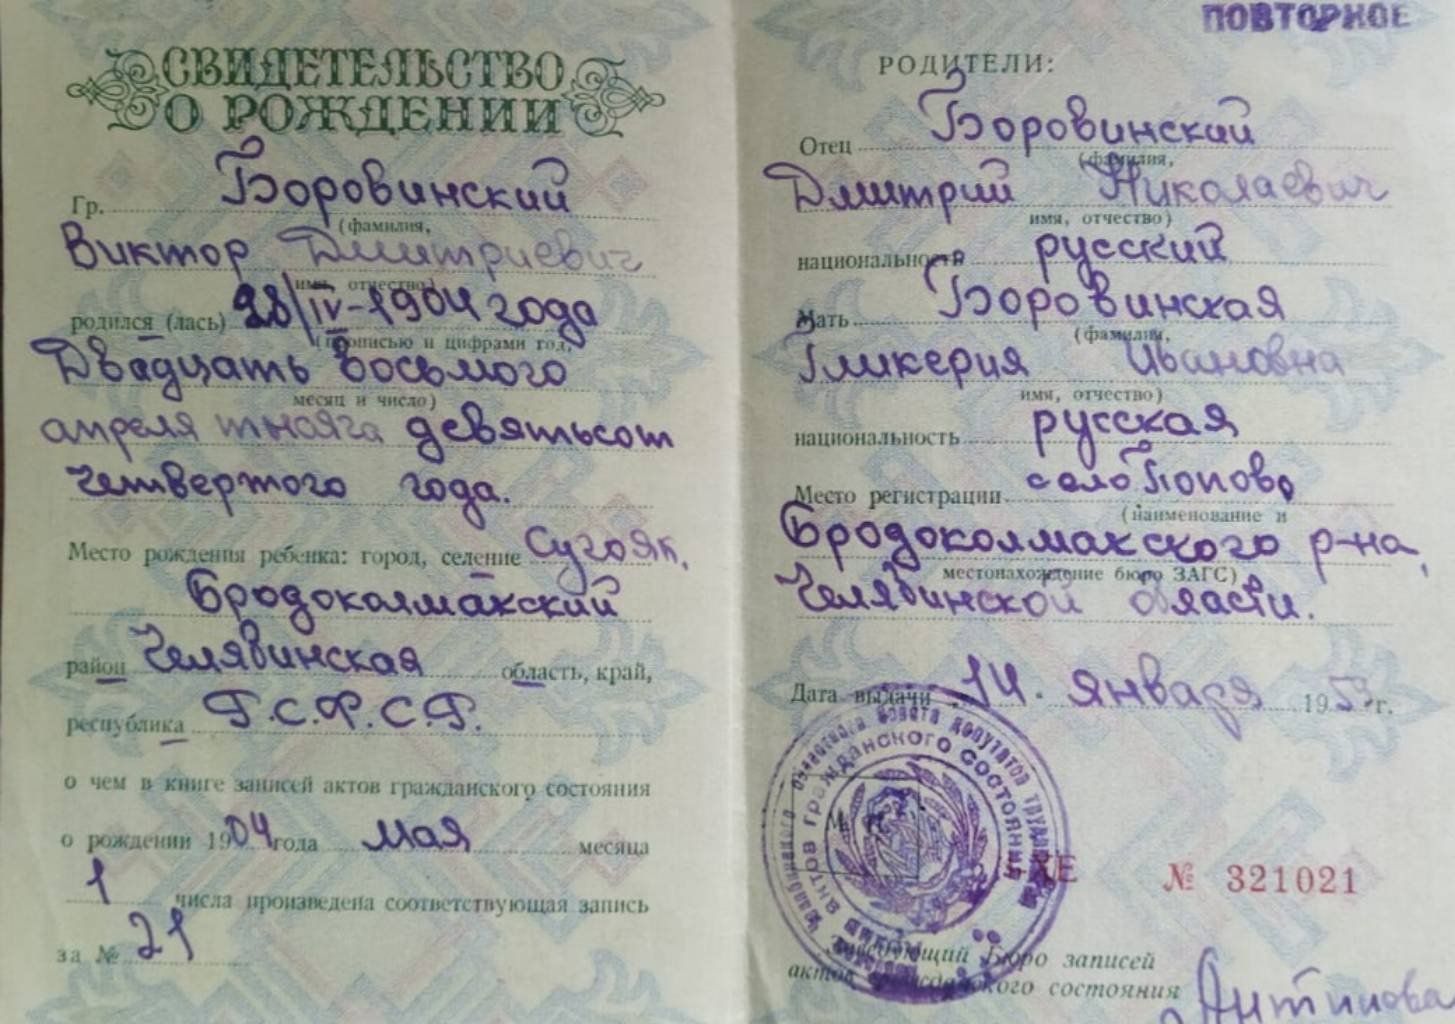 СВИДЕТЕЛЬСТВО
О РОЖДЕНИИ
Гр. Боровинский
(фамилия,
Виктор Дмитриевич
имя, отчество)
родился (лась) 28/IV-1904 года
(прописью и цифрами год,
Двадцать восьмого
месяц и число)
апреля девятьсот
четвертого года.
Место рождения ребенка: город, селение Сугояк,
Бродоколмакский
район Челябинская область, край,
республика Р.С.Ф.С.Р.
о чем в книге записей актов гражданского состояния
о рождении 1904 года мая месяца
1 числа произведена соответствующая запись
за № 21
ПОВТОРНОЕ
РОДИТЕЛИ:
Отец Боровинский
(фамилия,
Дмитрий Николаевич
имя, отчество)
национальность русский
Мать Боровинская
(фамилия,
Гликерия Ивановна
имя, отчество)
национальность русская
Место регистрации село Попово,
(наименование и
Бродоколмакского р-на,
местонахождение бюро ЗАГС)
Челябинской области.
Дата выдачи 14. января 195 г.
областного совета депутатов трудящихся
актов гражданского состояния
№ 321021
Заведующий Бюро записей
актов гражданского состояния